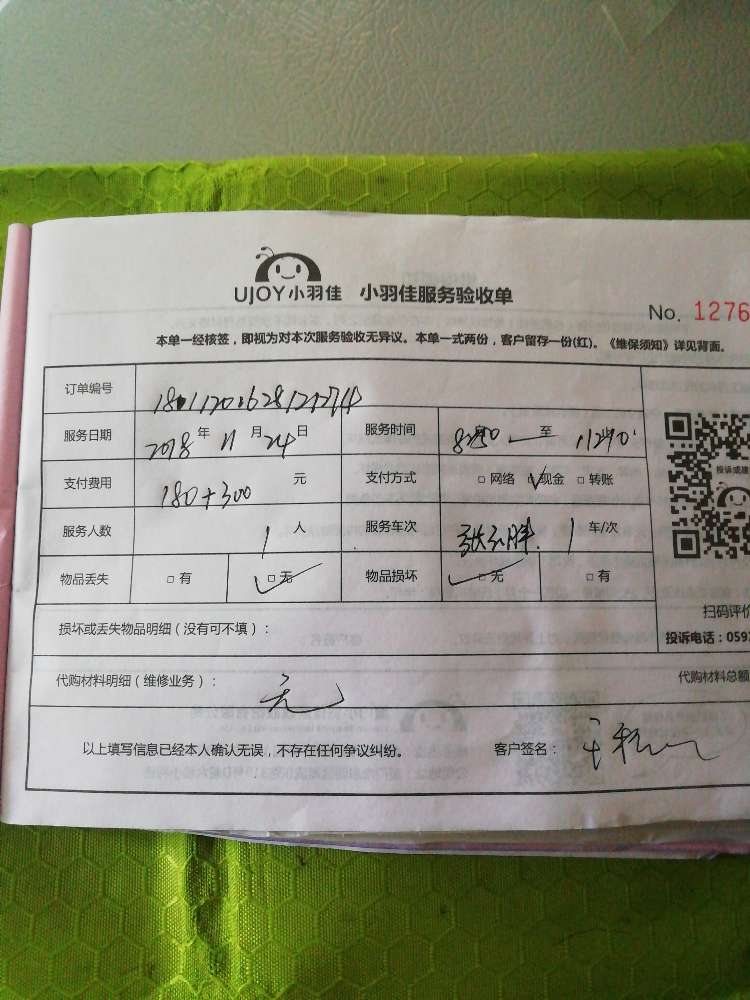 UJOY小羽佳 小羽佳服务验收单
No. 1276
本单一经核签，即视为对本次服务验收无异议。本单一式两份，客户留存一份(红)。《维保须知》详见背面。
订单编号
服务日期 2018年 11月 24日 服务时间 至
支付费用 180+300 元 支付方式 □网络 □现金 □转账
服务人数 1 人 服务车次 1 车/次
物品丢失 □有 □无 物品损坏 □无 □有
扫码评价
损坏或丢失物品明细（没有可不填）：
投诉电话：059
代购材料明细（维修业务）： 无
代购材料总额
以上填写信息已经本人确认无误，不存在任何争议纠纷。 客户签名：